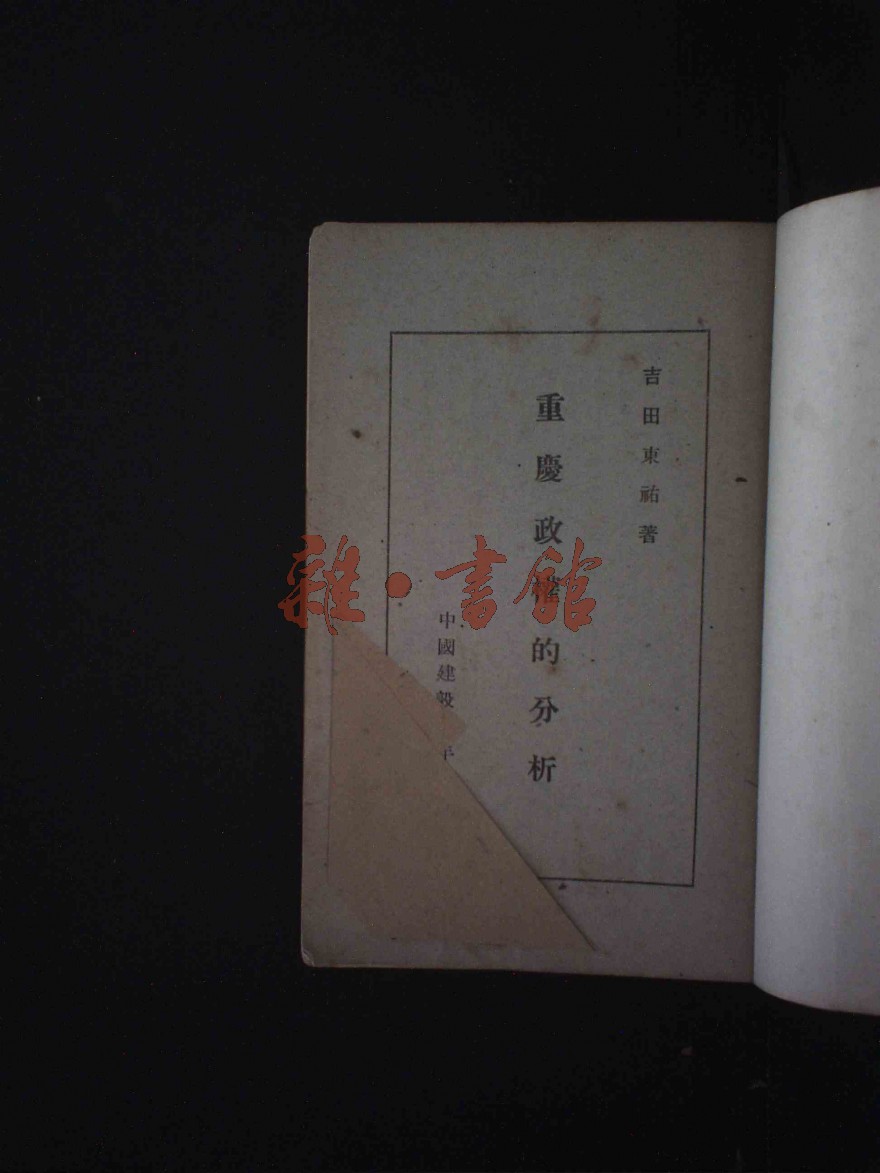 吉田東祐著
重慶政權的分析
中國建設
雜·書館